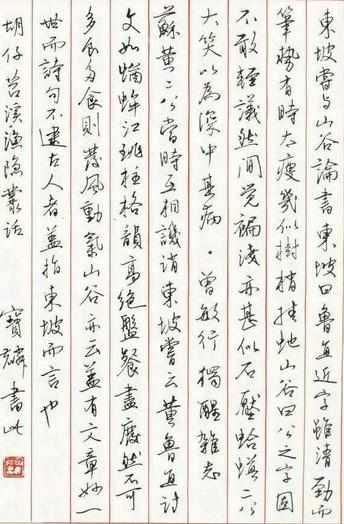 東坡嘗与山谷論書東坡曰魯直近字雖清勁而
筆勢有時太瘦幾似樹梢挂蛇山谷曰公之字固
不敢輕議然間覺褊淺亦甚似石壓蛤蟆二公
大笑以為深中其病·曾敏行獨醒雜志
蘇黃二公當時互相譏誚東坡嘗云黃魯直詩
文如蝤蛑江珧柱格韻高絕盤餐盡廢然不可
多食多食則發風動氣山谷亦云蓋有文章妙一
世而詩句不逮古人者蓋指東坡而言也
胡仔苕溪漁隱叢話 寶璘書此